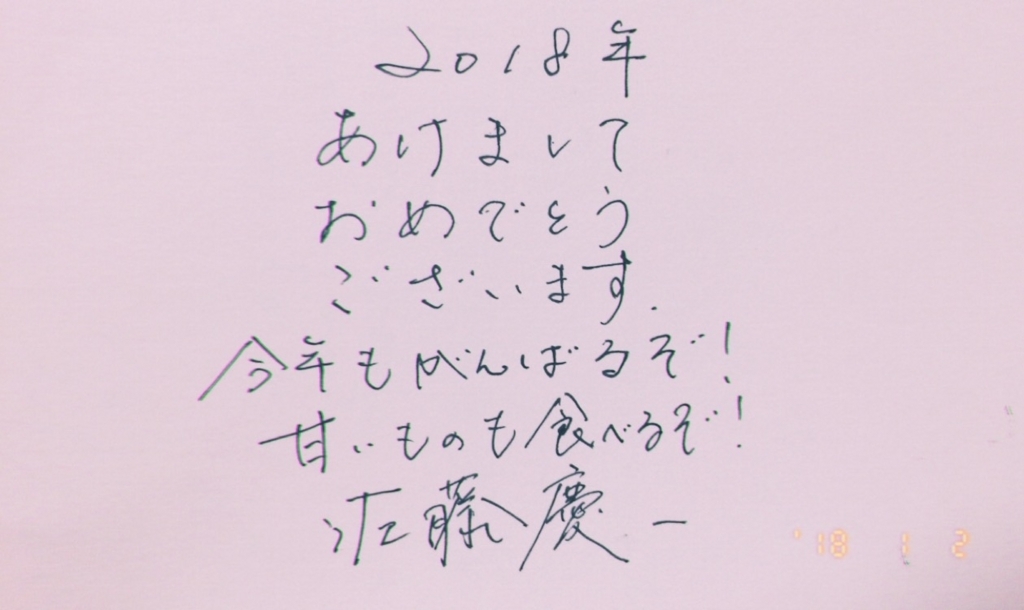 2018年
あけまして
おめでとう
ございます.
今年もがんばるぞ!
甘いものも食べるぞ!
佐藤慶一
'18 1 2